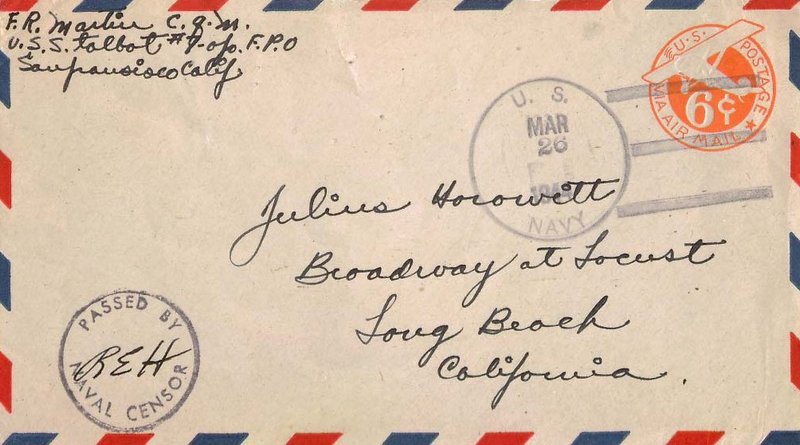 F. R. Martin C.Q.M.
U.S.S. Talbot #7-op. F.P.O
Sanfransisco Calif
U.S. POSTAGE
6¢
VIA AIR MAIL
U. S.
MAR
26
NAVY
Julius Horowitt
Broadway at Locust
Long Beach
California.
PASSED BY
REH
NAVAL CENSOR